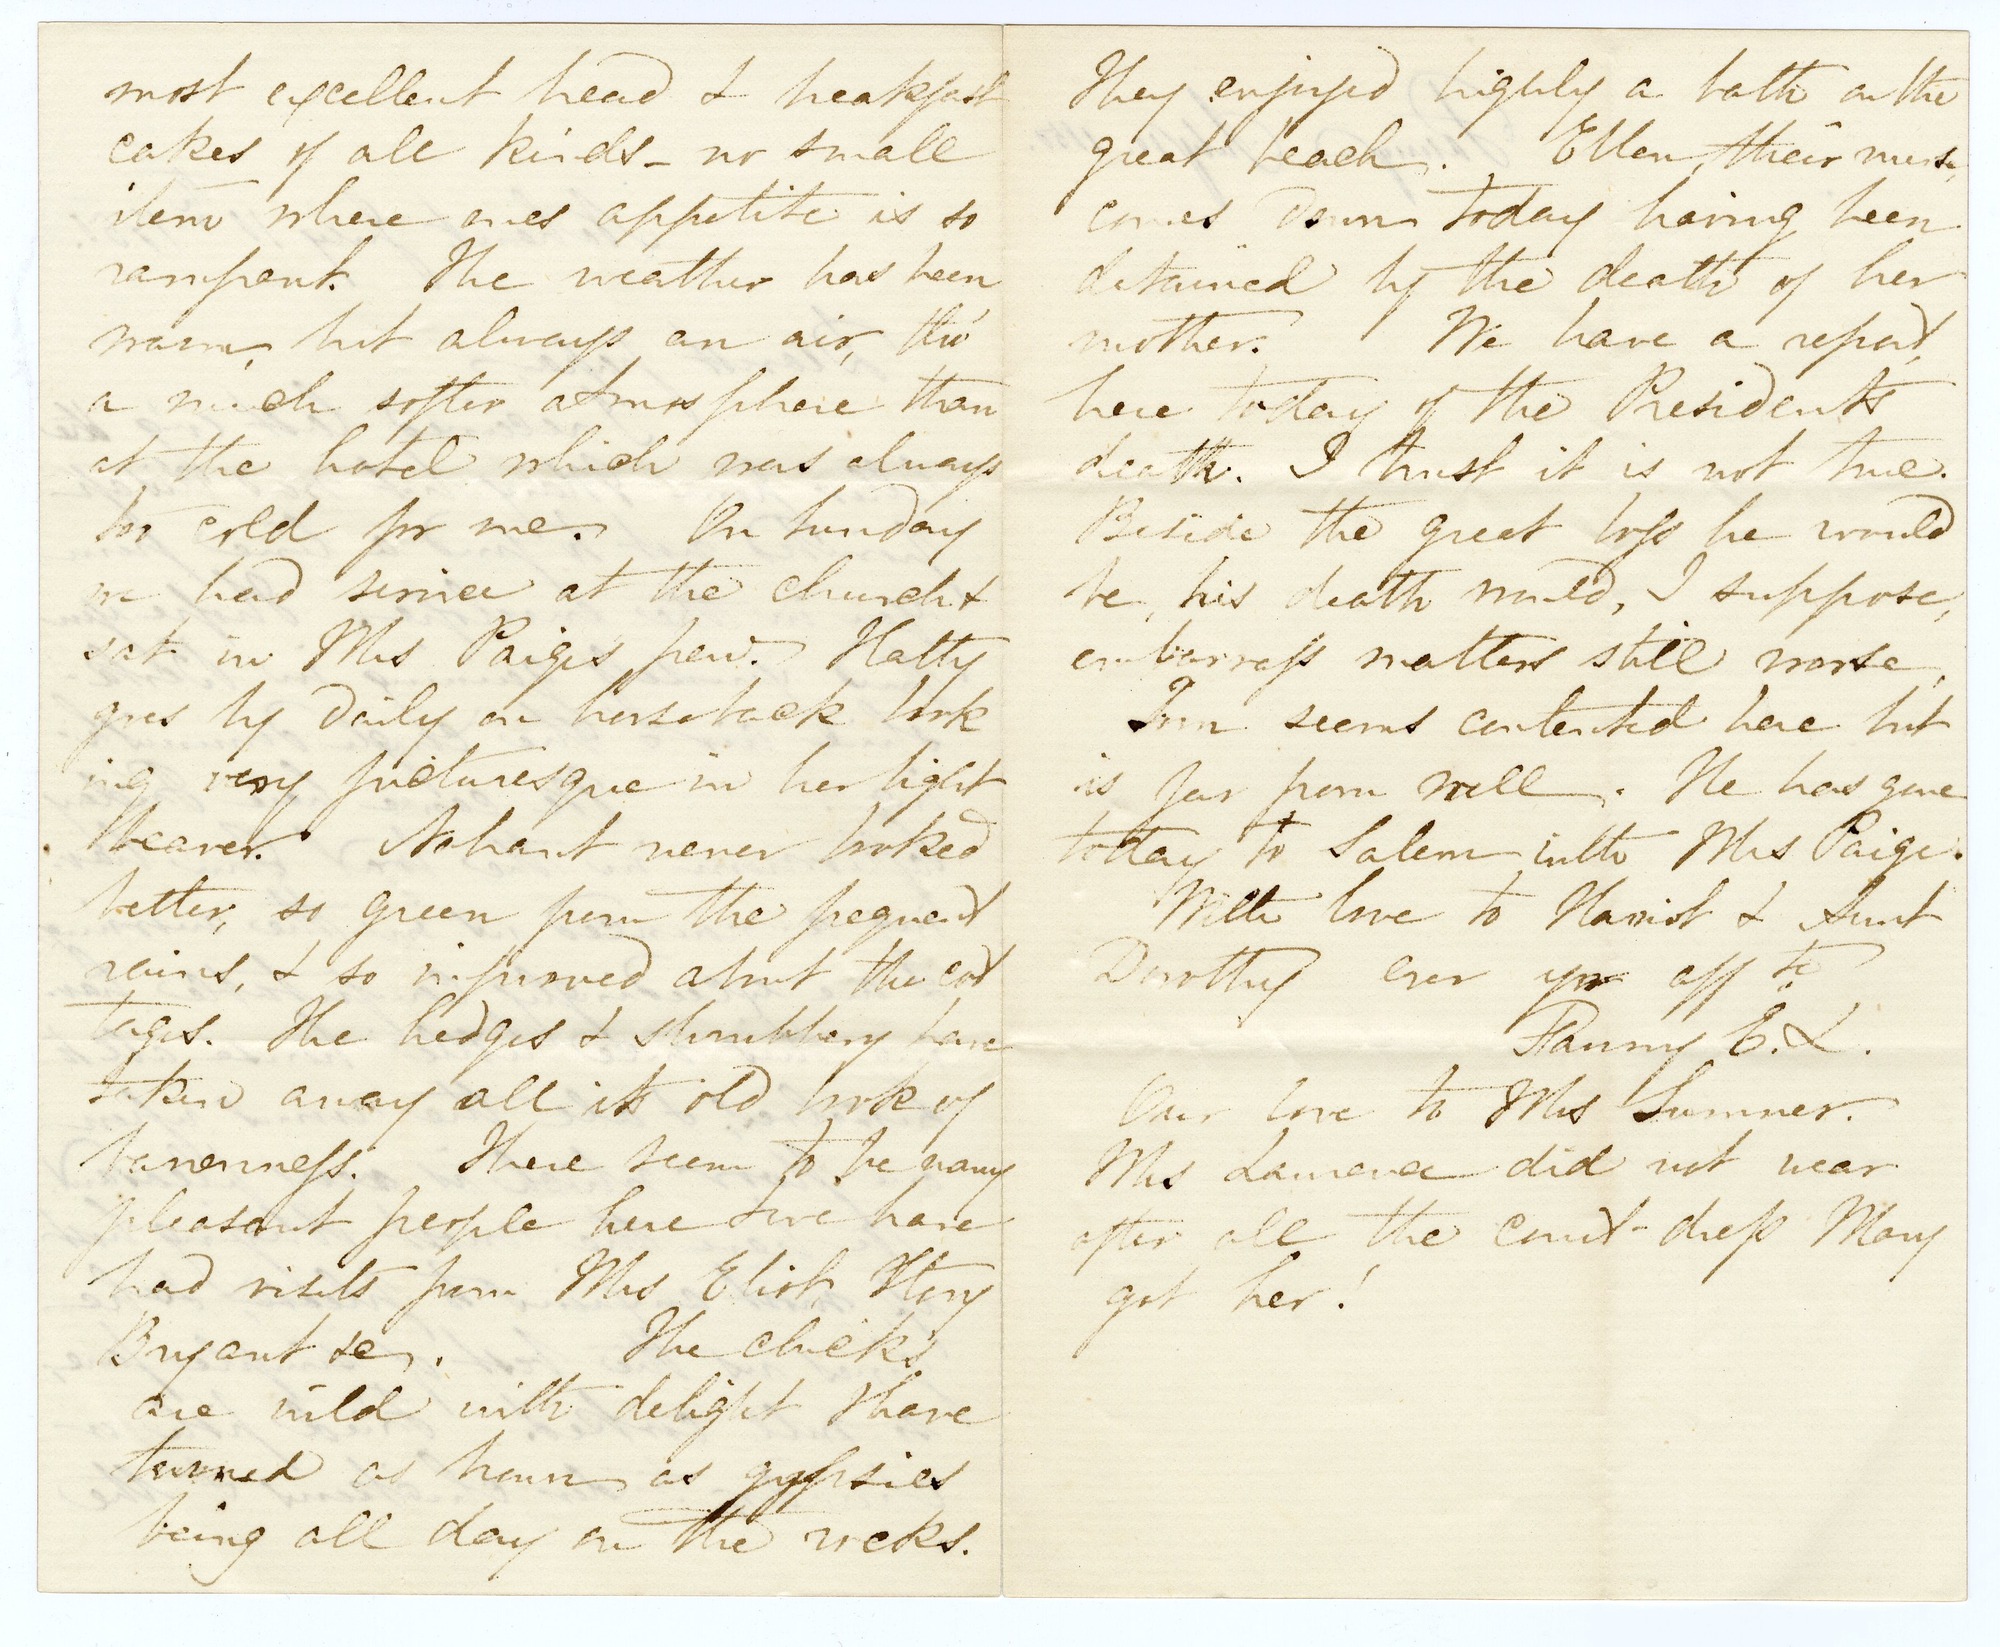 most excellent bread & breakfast
cakes of all kinds – no small
item where ones appetite is so
rampant. The weather has been
warm, but always an air, tho'
a much softer atmosphere than
at the hotel which was always
too cold for me. On Sunday
we had service at the church &
sat in Mrs Paige's pew. Hatty
goes by daily on horseback look
ing very picturesque in her light
beaver. Nahant never looked
better, so green from the frequent
rains, & so improved about the cot
tages. The hedges & shrubbery have
taken away all its old look of
barenness. There seem to be many
pleasant people here & we have
had visits from Mrs Eliot, Story
Bryant &c. The chicks
are wild with delight & have
turned as brown as gypsies
being all day on the rocks.
They enjoyed highly a bath on the
great beach. Ellen, their nurse,
comes down today having been
detained by the death of her
mother. We have a report
here today of the President's
death. I trust it is not true.
Beside the great loss he would
be, his death would, I suppose,
embarrass matters still worse.
Tom seems contented here but
is far from well. He has gone
today to Salem with Mrs Paige.
With love to Harriot & Aunt
Dorothy ever yr aff te
Fanny E. L.
Our love to Mrs Sumner.
Mrs Lawrence did not wear
after all the court-dress Mary
got her!